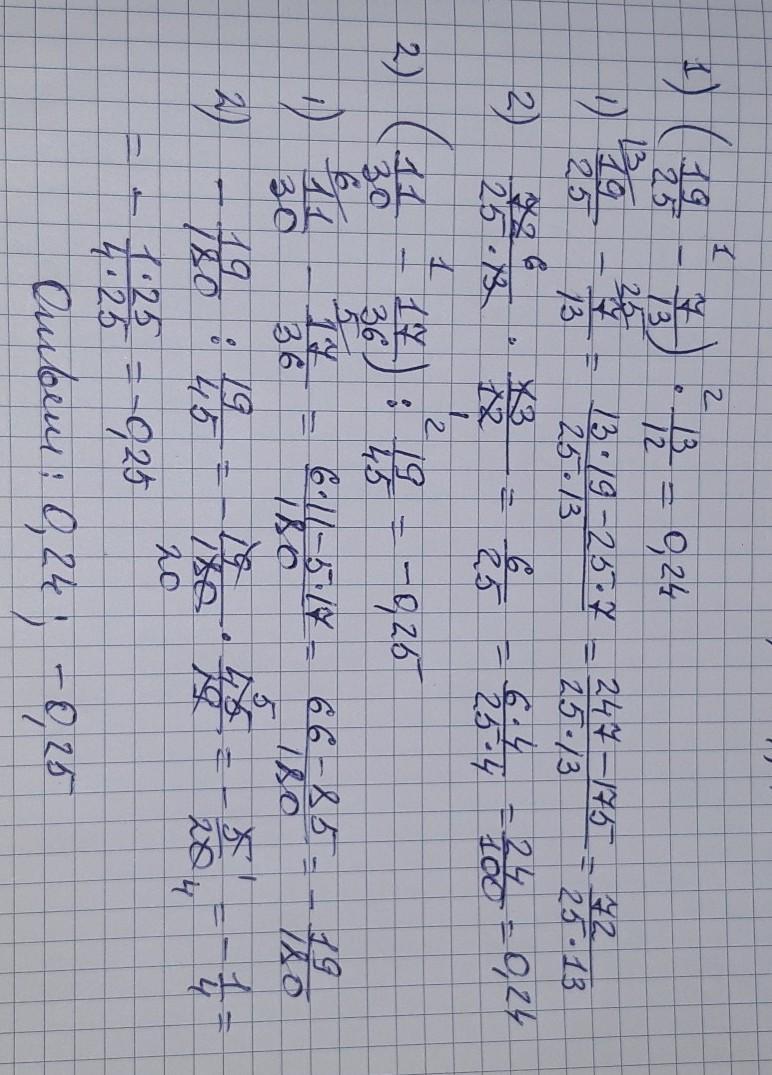 1) (19/25 - 7/13) · 13/12 = 0,24
1) 19/25 - 7/13 = (13·19-25·7)/(25·13) = (247-175)/(25·13) = 72/(25·13)
2) 72/(25·13) · 13/12 = 6/25 = (6·4)/(25·4) = 24/100 = 0,24
2) (11/30 - 17/36) : 19/45 = -0,25
1) 11/30 - 17/36 = (6·11-5·17)/180 = (66-85)/180 = -19/180
2) -19/180 : 19/45 = -19/180 · 45/19 = -5/20 = -1/4 =
= -(1·25)/(4·25) = -0,25
Ответ: 0,24; -0,25